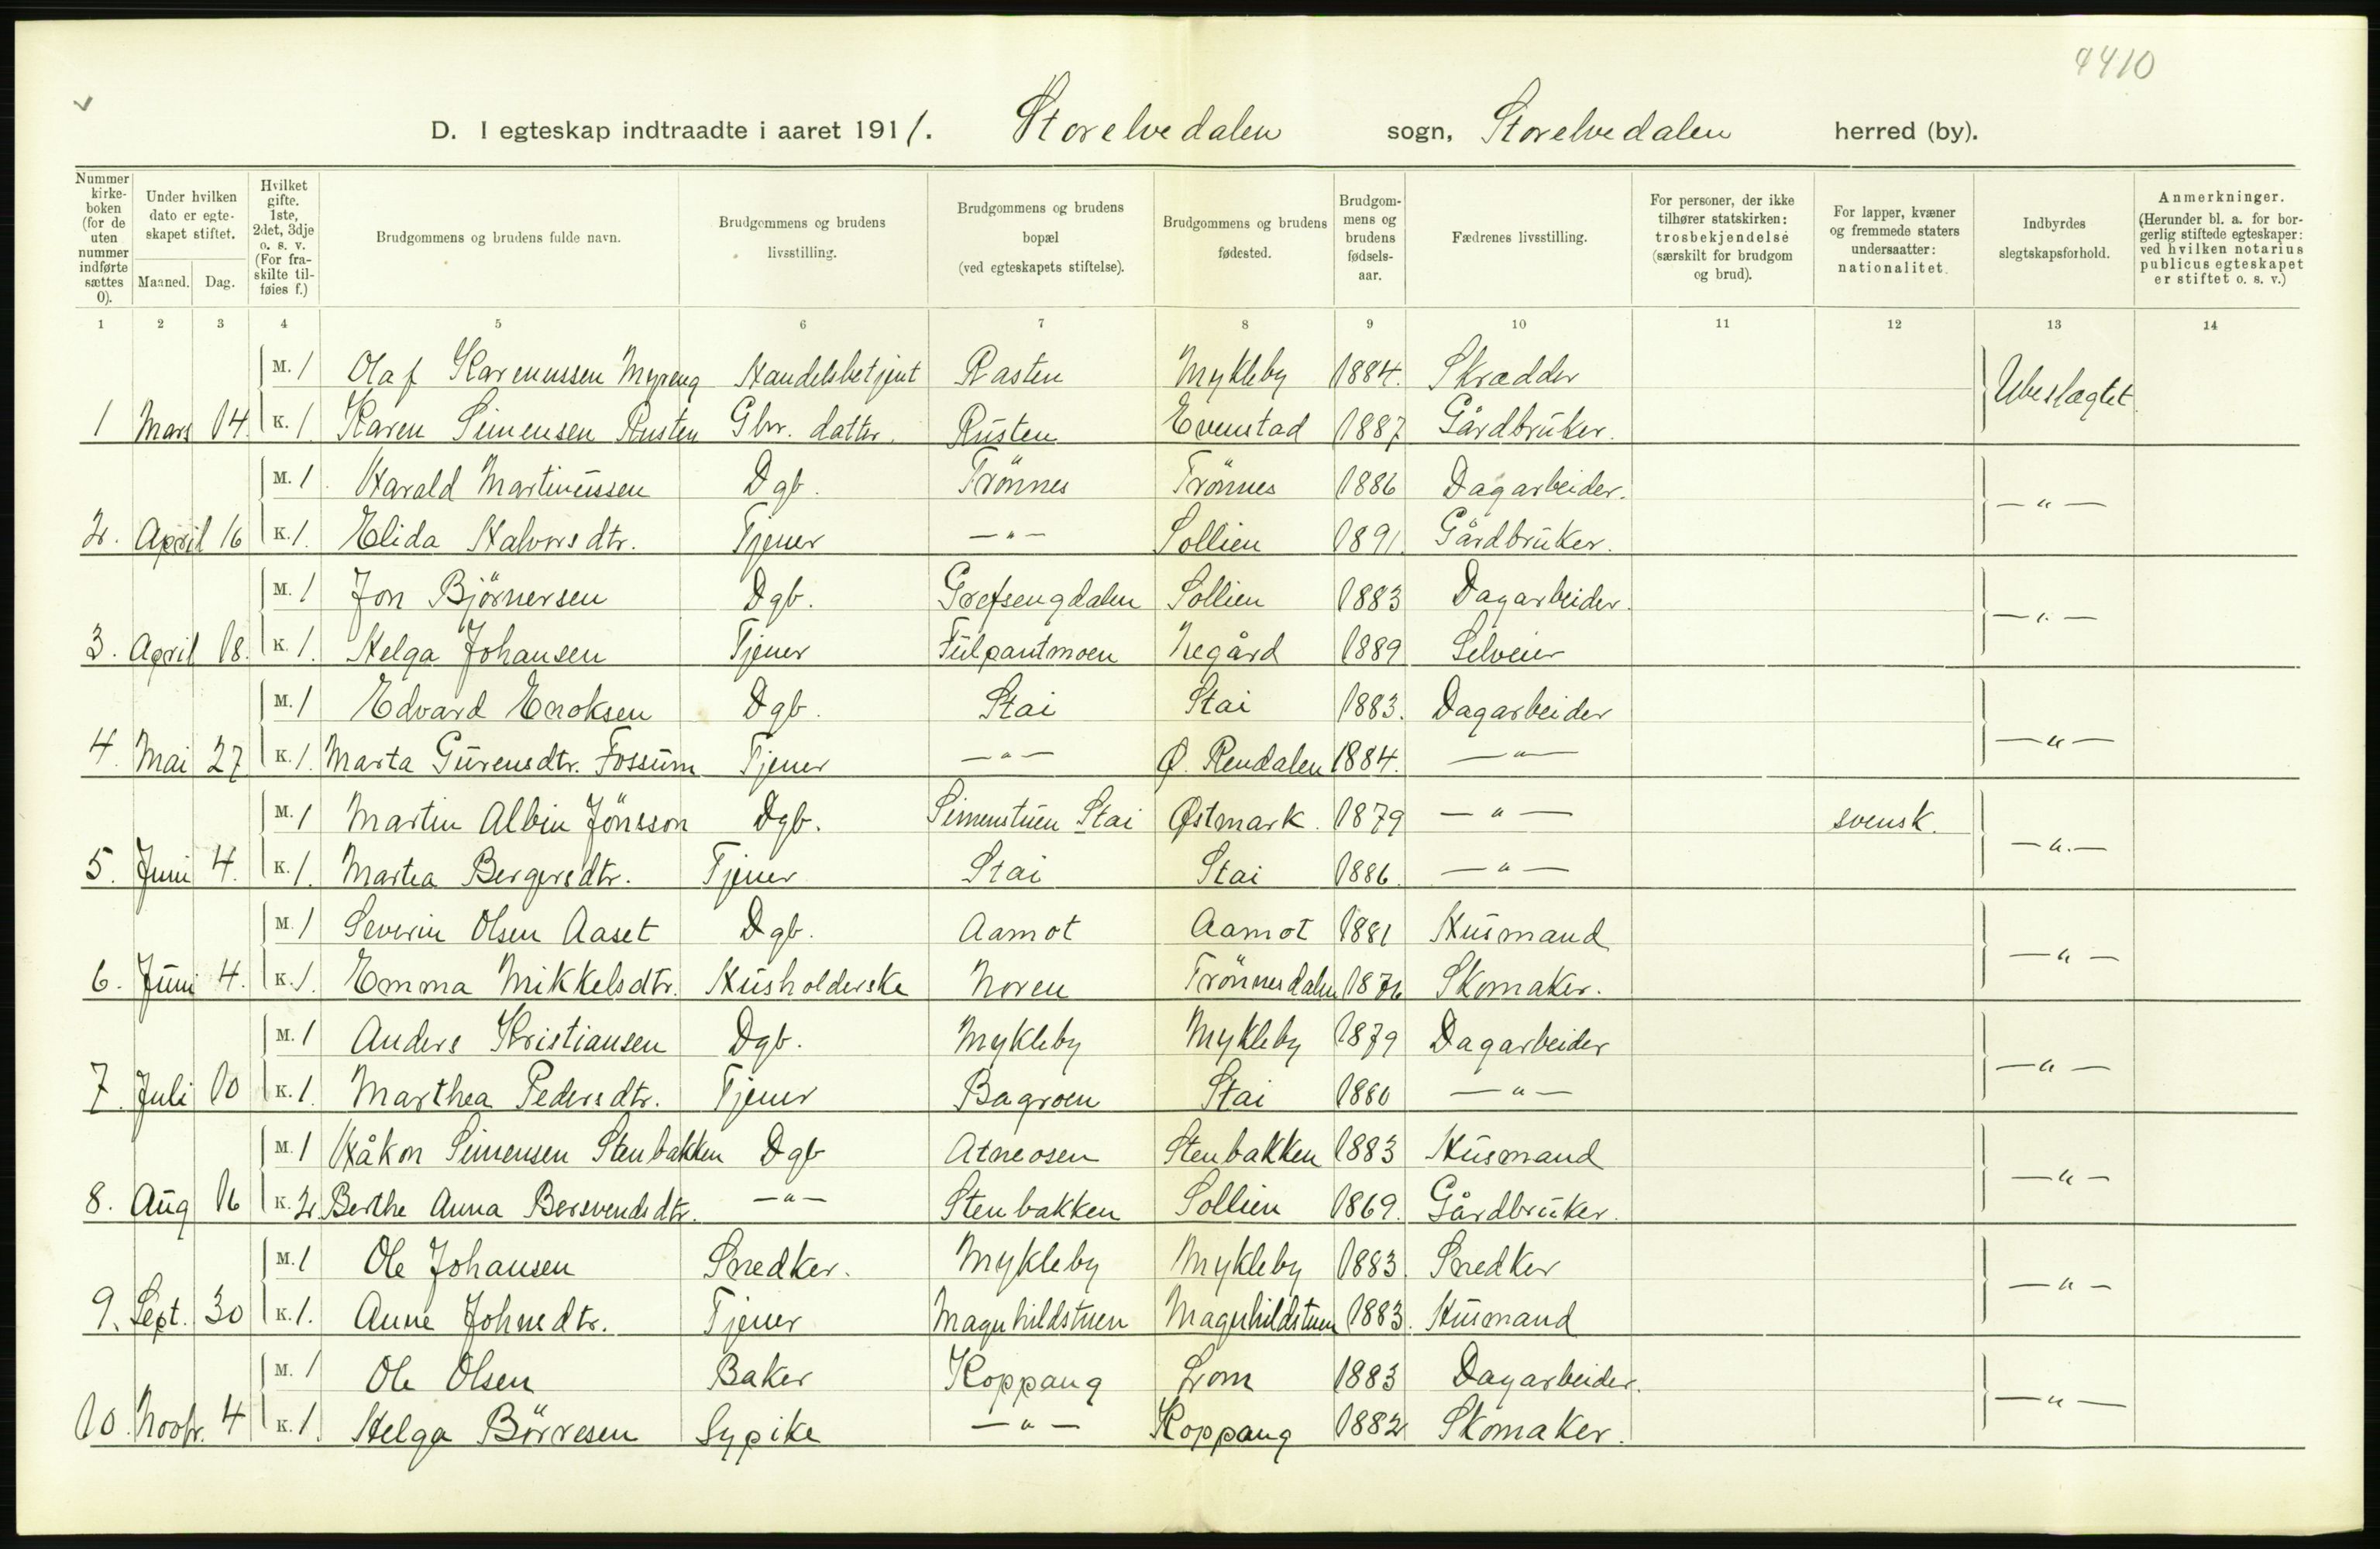 4410
D. I egteskap indtraadte i aaret 1911. Storelvedalen sogn, Storelvedalen herred (by).
Nummer kirkeboken (for de uten nummer indførte sættes 0). Under hvilken dato er egteskapet stiftet. Maaned. Dag. Hvilket gifte. 1ste, 2det, 3dje o. s. v. (For fraskilte tilføies f.) Brudgommens og brudens fulde navn. Brudgommens og brudens livsstilling. Brudgommens og brudens bopæl (ved egteskapets stiftelse). Brudgommens og brudens fødested. Brudgommens og brudens fødselsaar. Fædrenes livsstilling. For personer, der ikke tilhører statskirken: trosbekjendelse (særskilt for brudgom og brud). For lapper, kvæner og fremmede staters undersaatter: nationalitet. Indbyrdes slegtskapsforhold. Anmerkninger. (Herunder bl. a. for borgerlig stiftede egteskaper: ved hvilken notarius publicus egteskapet er stiftet o. s. v.)
1 2 3 4 5 6 7 8 9 10 11 12 13 14
M. 1 Olaf Karenussen Myreng Handelsbetjent Rasten Mykleby 1884. Skrædder Ubeslægtet
1 Mars 14. K. 1. Karen Simensen Rusten Gbr. datter. Rusten Evenstad 1887 Gårdbruker.
M. 1. Harald Martinussen Dgb. Trönnes Trönnes 1886 Dagarbeider. — " —
2. April 16 K. 1. Elida Halvorsdtr. Tjener — " — Sollien 1891. Gårdbruker.
M. 1 Jon Björnersen Dgb. Grefsengdalen Sollien 1883 Dagarbeider. — " —
3. April 18. K. 1. Helga Johansen Tjener Fulpantmoen Negård 1889 Selveier
M. 1 Edvard Enoksen Dgb. Stai Stai 1883. Dagarbeider — " —
4. Mai 27 K. 1. Marta Gurensdtr. Fossum Tjener — " — Ø. Rendalen 1884. — " —
M. 1 Martin Albin Jönsson Dgb. Simenstuen Stai Østmark. 1879 — " — svensk. — " —
5. Juni 4. K. 1. Martea Bergersdtr. Tjener Stai Stai 1886. — " —
M. 1 Severin Olsen Aaset Dgb. Aamot Aamot 1881 Husmand — " —
6. Juni 4. K. 1. Emma Mikkelsdtr. Husholderske Noren Trönnesdalen 1876 Skomaker.
M. 1 Anders Kristiansen Dgb. Mykleby Mykleby 1879 Dagarbeider — " —
7. Juli 10 K. 1. Marthea Pedersdtr. Tjener Bagroen Stai 1880 — " —
M. 1 Håkon Simensen Stenbakken Dgb Atneosen Stenbakken 1883 Husmand — " —
8. Aug 16 K. 2. Berthe Anna Bersvendsdtr. — " — Stenbakken Sollien 1869. Gårdbruker.
M. 1 Ole Johansen Snedker. Mykleby Mykleby 1883. Snedker — " —
9. Sept. 30 K. 1. Anne Johnsdtr. Tjener Magnhildstuen Magnhildstuen 1883. Husmand
M. 1 Ole Olsen Baker Koppang Lom 1883 Dagarbeider. — " —
10. Novbr. 4 K. 1. Helga Börresen Sypike — " — Koppang 1882 Skomaker.